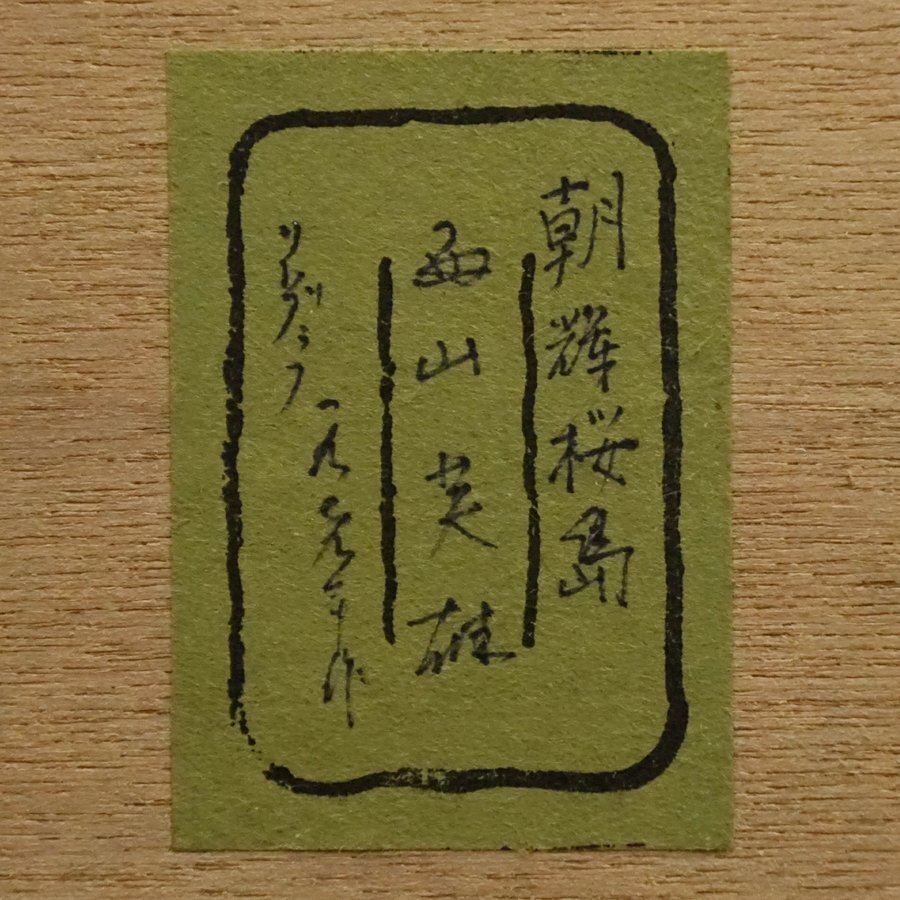 朝輝桜島
西山英雄
リトグラフ
一九 年作